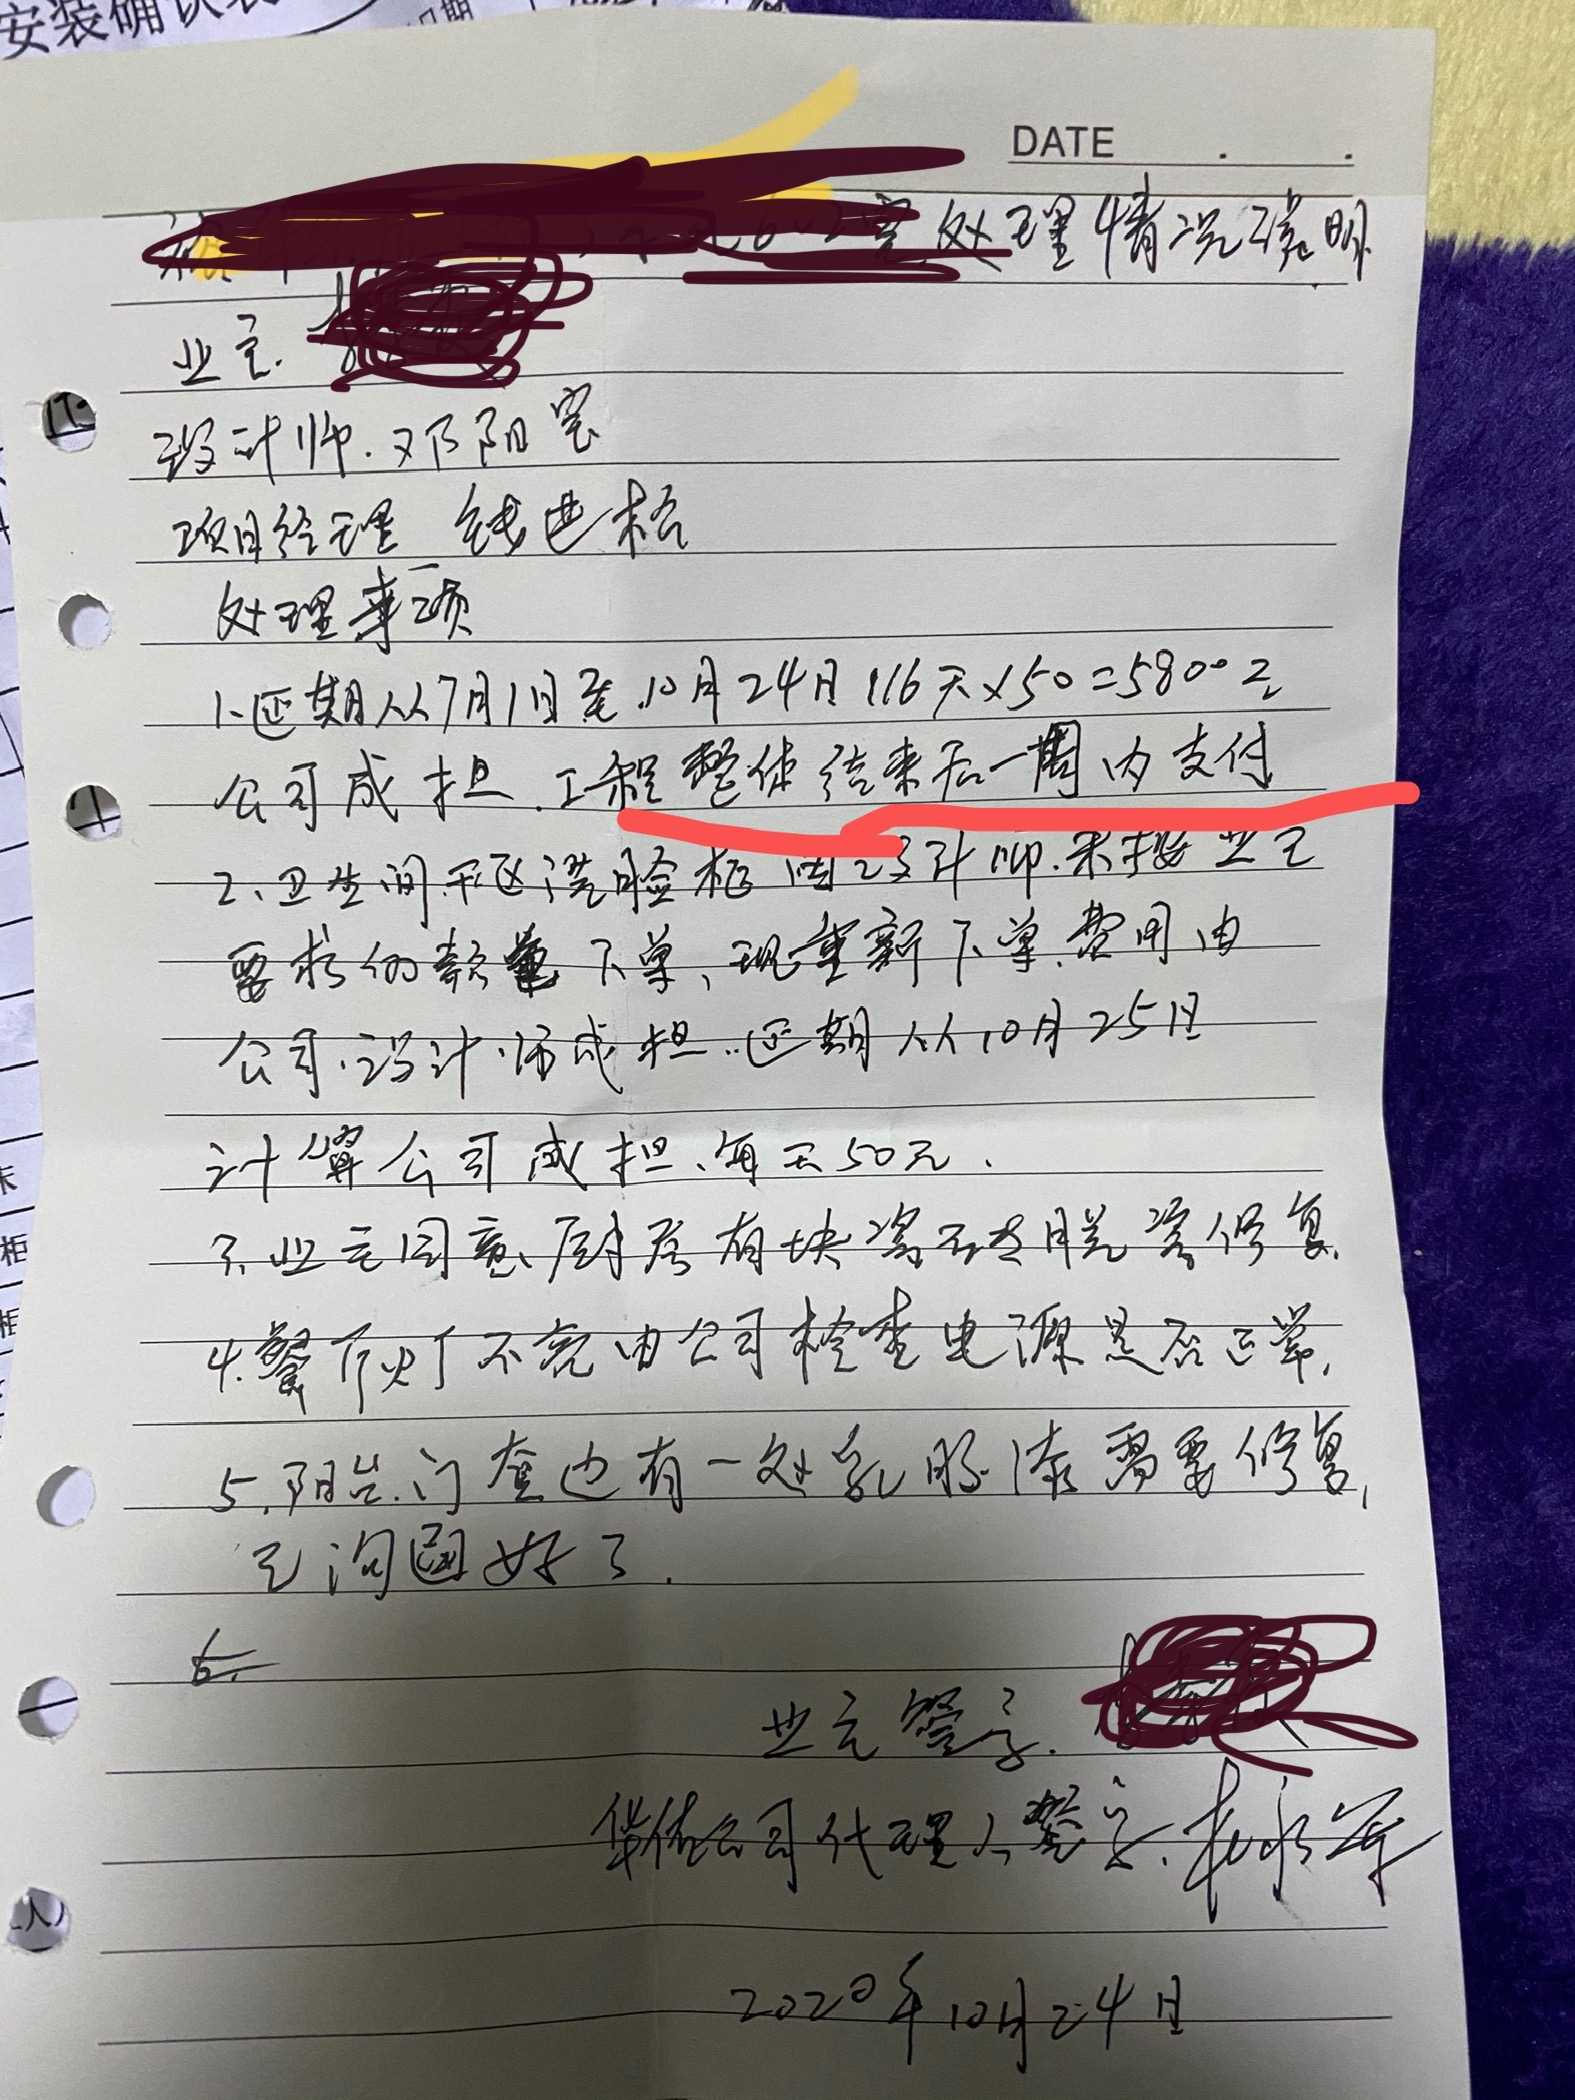 安装确认表
日期
DATE . .
室处理情况说明
业主.
设计师.邓阳宝
项目经理 钱世格
处理事项
1.延期从7月1日至10月24日116天×50=5800元
公司成担.工程整体结束后一周内支付
2、卫生间 洗脸柜因设计师.未按业主
要求的款 下单、现重新下单.费用由
公司.设计师成担..延期从10月25日
计算公司成担、每天50元.
3.业主同意、厨房有块瓷砖去脱瓷修复.
4.餐厅灯不亮由公司检查电源是否正常,
5.阳台.门套边有一处乳胶漆需要修复,
已沟通好了.
6.
业主签字.
华佑公司代理人签字.
2020年10月24日
柜
柜